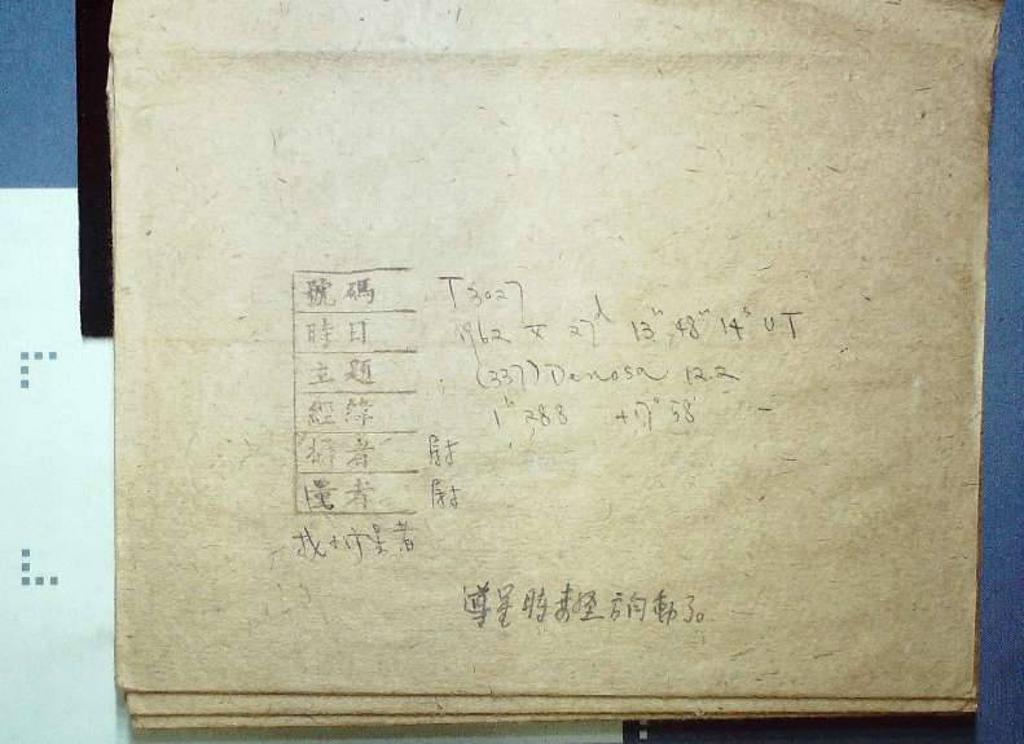 號碼 T3027
時日 1962 X 27ᵈ 13ʰ 48ᵐ 14ˢ UT
主題 (337) Devosa 12.2
經緯 1ʰ 28.8 +17° 58'
攝者 尉
量者 尉
找小行星者
導星時赤經方向動了。